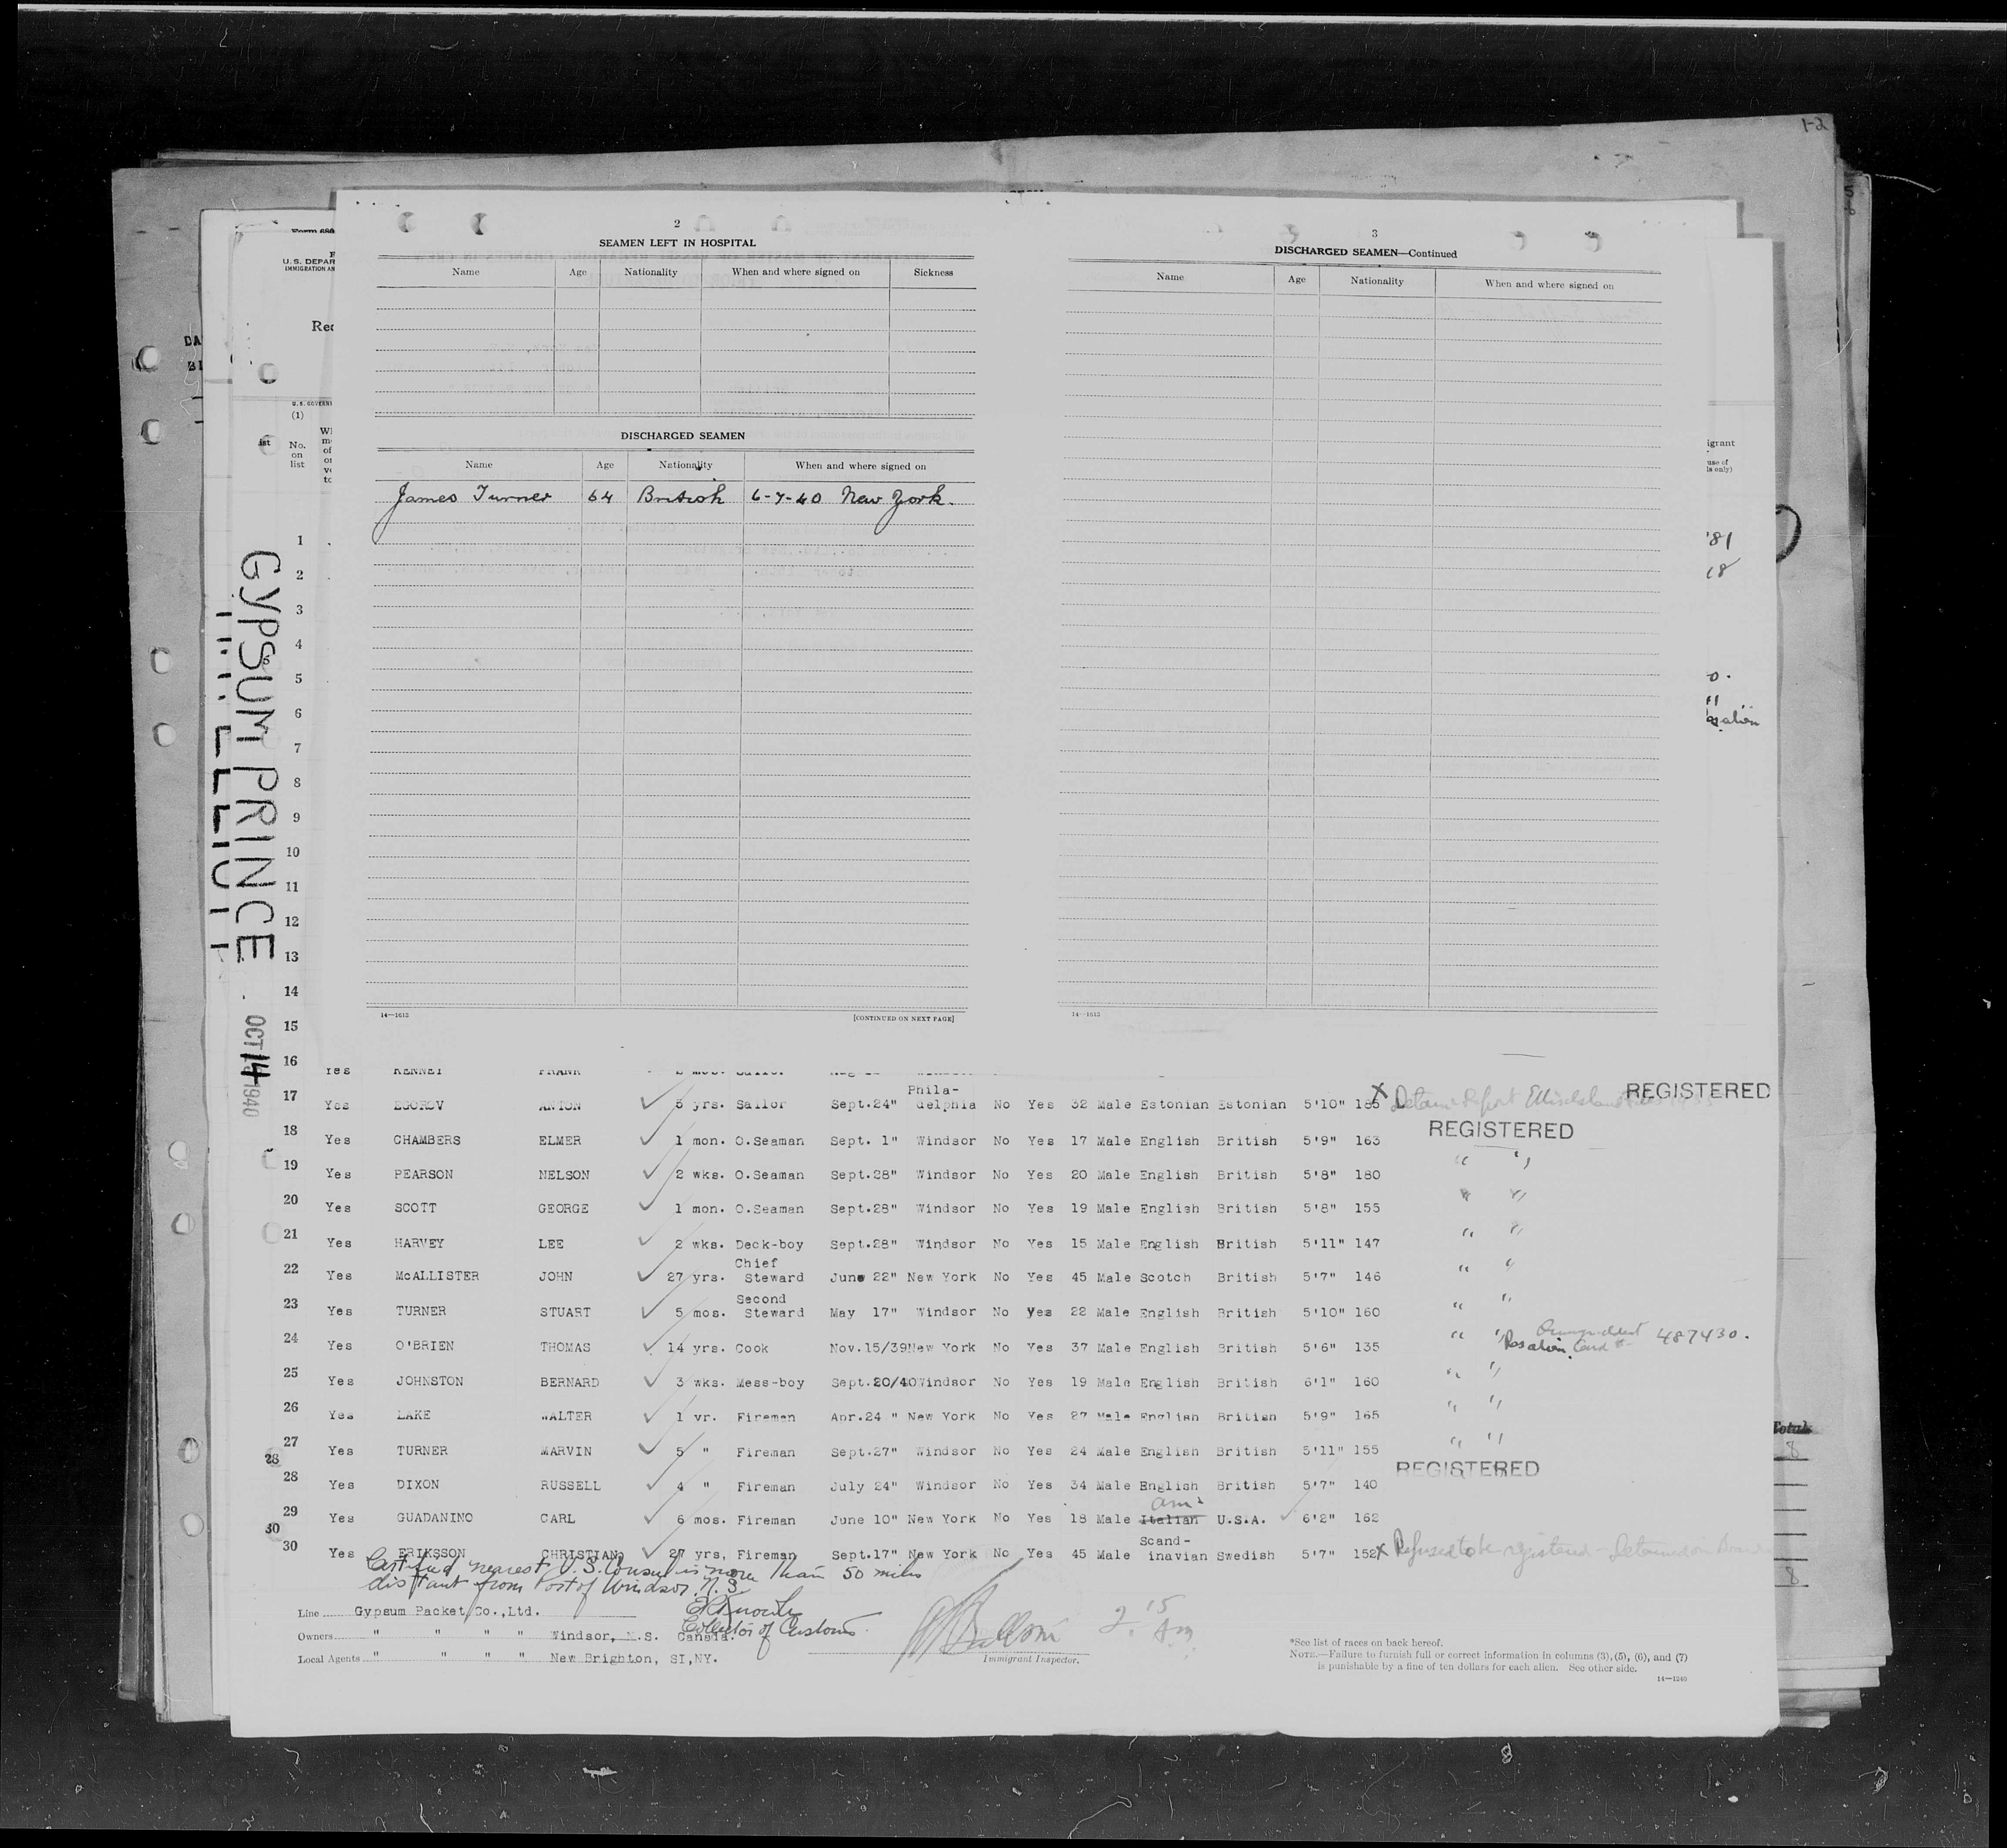 1-2
2
SEAMEN LEFT IN HOSPITAL
Name Age Nationality When and where signed on Sickness
DISCHARGED SEAMEN
Name Age Nationality When and where signed on
James Turner 64 British 6-7-40 New York.
14—1613 [CONTINUED ON NEXT PAGE]
3
DISCHARGED SEAMEN—Continued
Name Age Nationality When and where signed on
14—1613
U.S. DEPAR
IMMIGRATION AN
Rec
U.S. GOVERN
(1)
No.
on
list
igrant
use of
ls only)
'81
18
0.
"
GYPSUM PRINCE
OCT 14 1940
1
2
3
4
5
6
7
8
9
10
11
12
13
14
15
16 Yes KENNEY FRANK
17 Yes EGOROV ANTON 5 yrs. Sailor Sept.24" Phila-
delphia No Yes 32 Male Estonian Estonian 5'10" 185 X REGISTERED
18 Yes CHAMBERS ELMER 1 mon. O.Seaman Sept. 1" Windsor No Yes 17 Male English British 5'9" 163 REGISTERED
19 Yes PEARSON NELSON 2 wks. O.Seaman Sept.28" Windsor No Yes 20 Male English British 5'8" 180 " "
20 Yes SCOTT GEORGE 1 mon. O.Seaman Sept.28" Windsor No Yes 19 Male English British 5'8" 155 " "
21 Yes HARVEY LEE 2 wks. Deck-boy Sept.28" Windsor No Yes 15 Male English British 5'11" 147 " "
22 Yes McALLISTER JOHN 27 yrs. Chief
Steward June 22" New York No Yes 45 Male Scotch British 5'7" 146 " "
23 Yes TURNER STUART 5 mos. Second
Steward May 17" Windsor No Yes 22 Male English British 5'10" 160 " "
24 Yes O'BRIEN THOMAS 14 yrs. Cook Nov.15/39New York No Yes 37 Male English British 5'6" 135 " " Card 487430.
25 Yes JOHNSTON BERNARD 3 wks. Mess-boy Sept.20/40Windsor No Yes 19 Male English British 6'1" 160 " "
26 Yes LAKE WALTER 1 yr. Fireman Apr.24 " New York No Yes 27 Male English British 5'9" 165 " "
27 Yes TURNER MARVIN 5 " Fireman Sept.27" Windsor No Yes 24 Male English British 5'11" 155 " "
28
28 Yes DIXON RUSSELL 4 " Fireman July 24" Windsor No Yes 34 Male English British 5'7" 140 REGISTERED
29 Yes GUADANINO CARL 6 mos. Fireman June 10" New York No Yes 18 Male Italian Am. U.S.A. 6'2" 162
30
30 Yes ERIKSSON CHRISTIAN 27 yrs, Fireman Sept.17" New York No Yes 45 Male Scand-
inavian Swedish 5'7" 152 X Refused to be registered - Detained on Board
Certified nearest U.S. Consul is more than 50 miles
distant from Port of Windsor, N.S.
Collector of Customs.
Line Gypsum Packet Co.,Ltd.
Owners " " " " Windsor, N.S. Canada.
Local Agents " " " " New Brighton, SI,NY.
Immigrant Inspector.
*See list of races on back hereof.
NOTE.—Failure to furnish full or correct information in columns (3),(5), (6), and (7)
is punishable by a fine of ten dollars for each alien. See other side.
14—1240
Totals
8
8